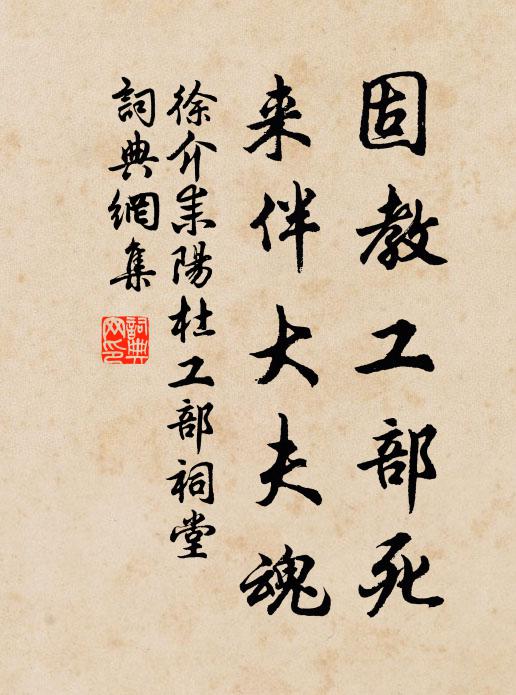 固教工部死
来伴大夫魂
徐介耒陽杜工部祠堂
詞典網集
詞典
网印